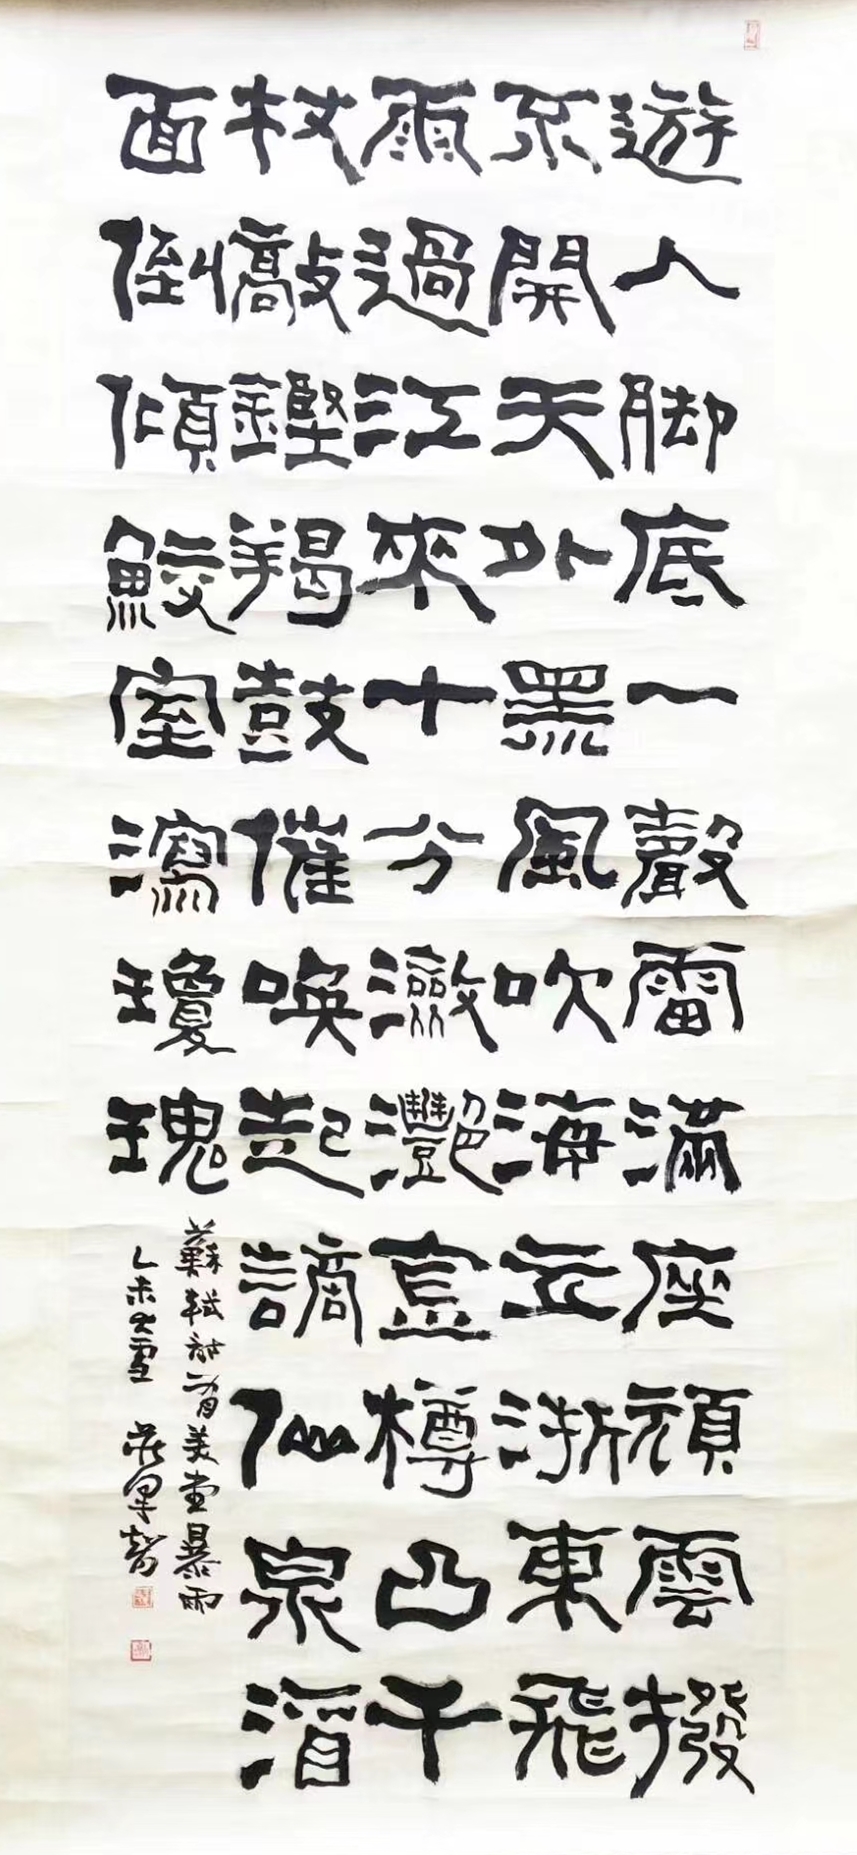 遊人脚底一聲雷滿座頑雲撥
不開天外黑風吹海立浙東飛
雨過江來十分瀲灧金樽凸千
杖敲鏗羯鼓催喚起謫仙泉洒
面倒傾鮫室瀉瓊瑰
蘇軾詩有美堂暴雨
乙未大雪 莊智